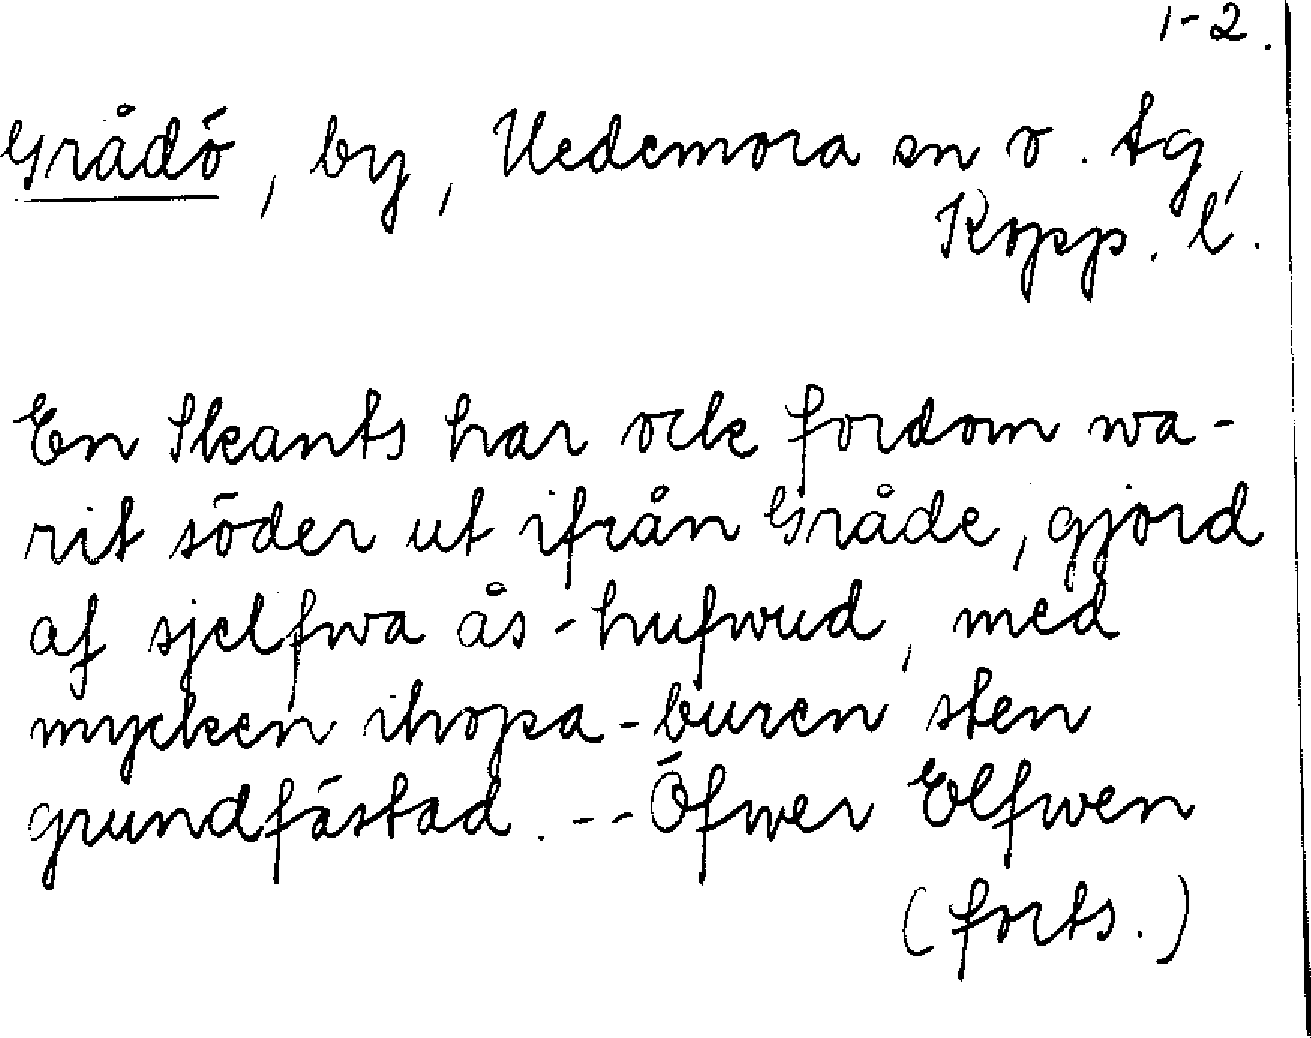 1-2.
Grådö, by, Vedemora sn o. tg,
Kopp. l.
En Skants har ock fordom wa-
rit söder ut ifrån Gråde, gjord
af sjelfwa ås-hufwud, med
mycken ihopa-buren sten
grundfästad. -- Öfwer Elfwen
(forts.)